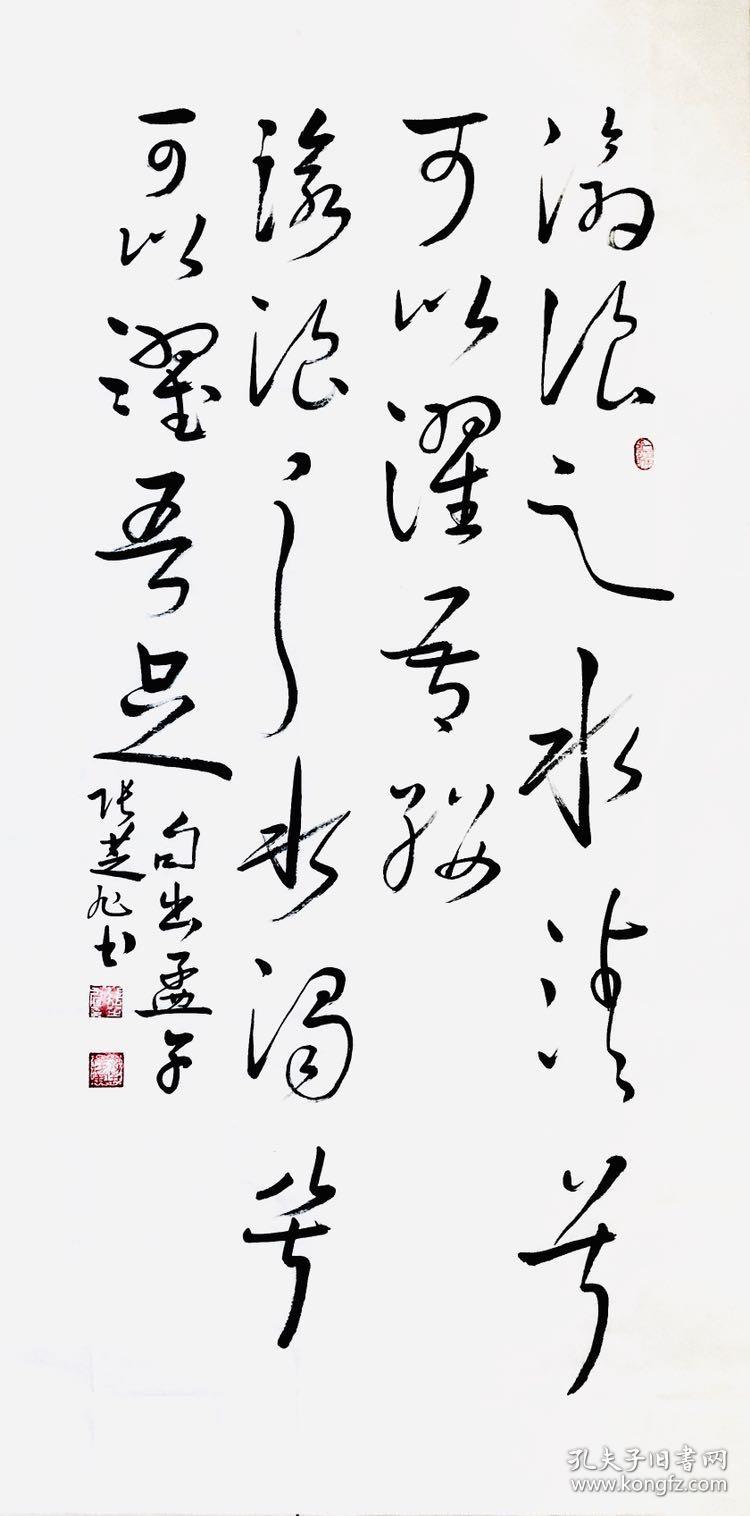 沧浪之水清兮
可以濯吾缨
沧浪之水浊兮
可以濯吾足
句出孟子
张芝旭书
孔夫子旧书网
www.kongfz.com